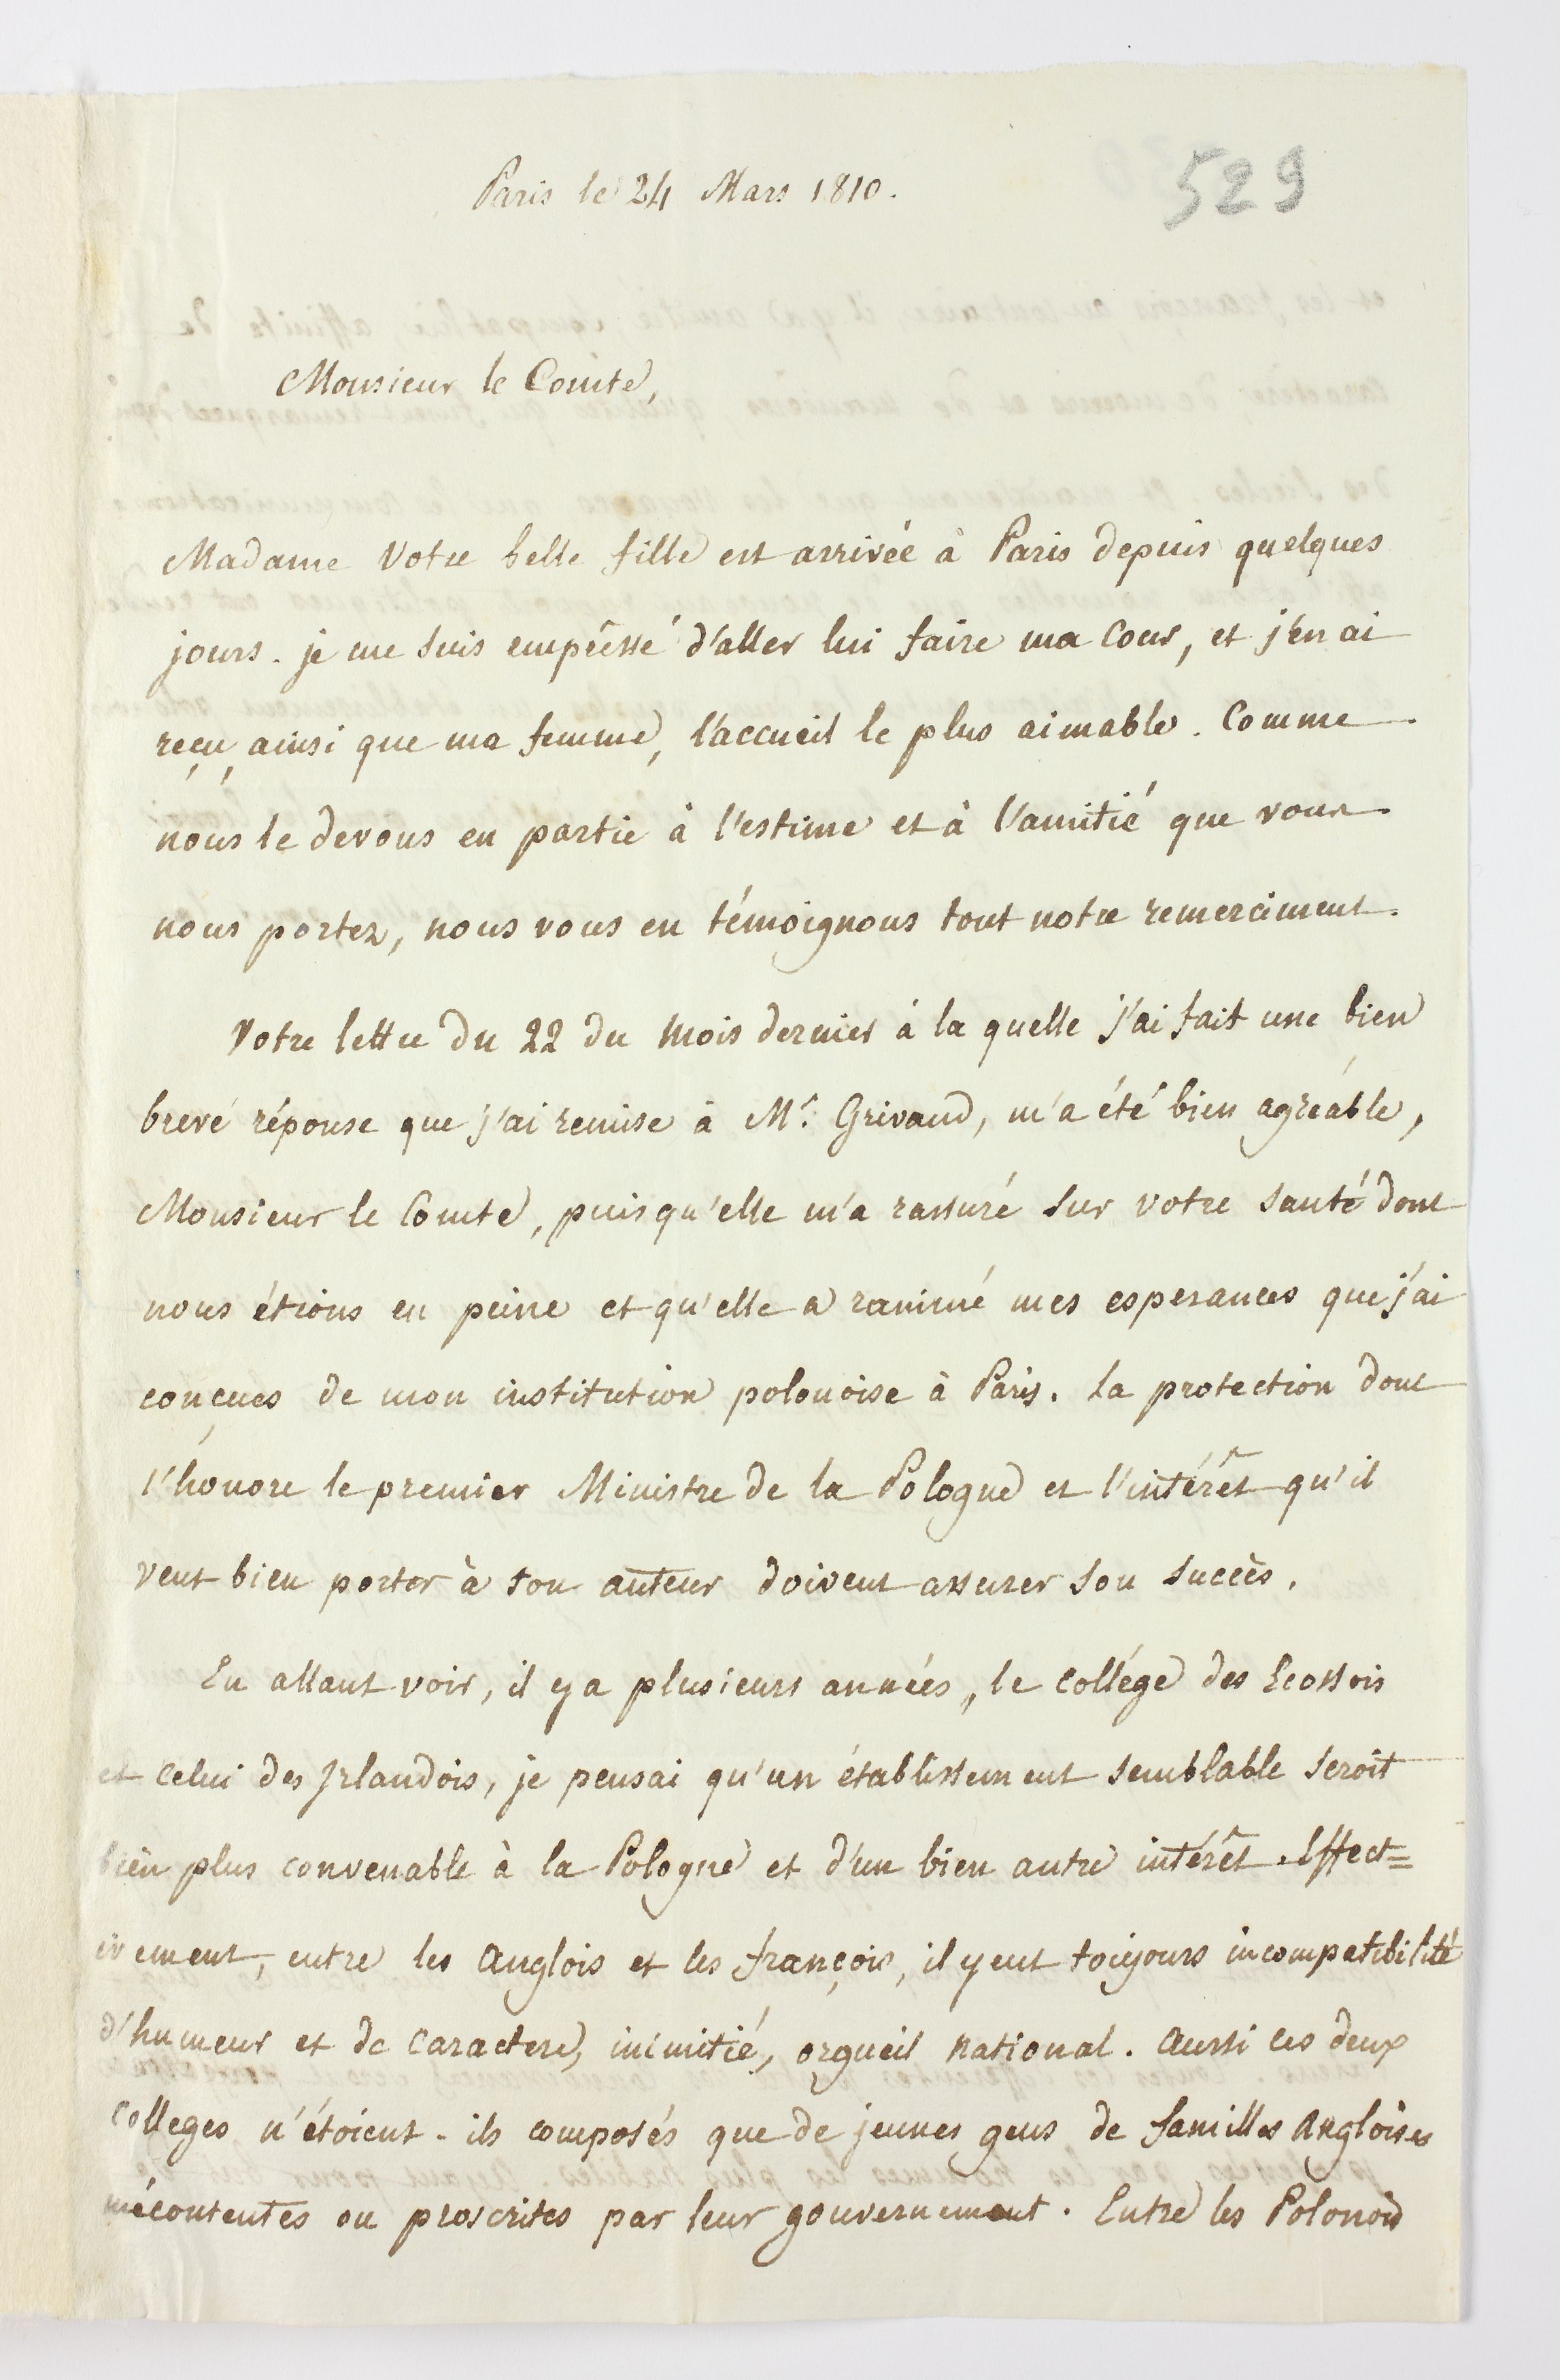 Paris le 24 Mars 1810.
529
Monsieur le Comte,
Madame Votre belle fille est arrivée à Paris depuis quelques
jours. je me suis empressé d'aller lui faire ma Cour, et j'en ai
reçu, ainsi que ma femme, l'accueil le plus aimable. Comme
nous le devons en partie à l'estime et à l'amitié que vous
nous portez, nous vous en témoignons tout notre remerciment.
Votre lettre du 22 du mois dernier à la quelle j'ai fait une bien
brevé réponse que j'ai remise à Mr. Grivaud, m'a été bien agréable,
Monsieur le Comte, puisqu'elle m'a rassuré sur votre santé dont
nous étions en peine et qu'elle a ranimé mes esperances que j'ai
conçues de mon institution polonoise à Paris. La protection dont
l'honore le premier Ministre de la Pologne et l'intérêt qu'il
veut bien porter à son auteur doivent assurer son succès.
En allant voir, il y a plusieurs années, le collége des Ecossois
et celui des Irlandois, je pensai qu'un établissement semblable seroit
bien plus convenable à la Pologne et d'un bien autre intérêt. Effect=
ivement, entre les Anglois et les françois, il y eut toujours incompatibilité
d'humeur et de caractere, inimitié, orgueil national. Aussi ces deux
Colleges n'étoient-ils composés que de jeunes gens de familles Angloises
mécontentes ou proscrites par leur gouvernement. Entre les Polonois